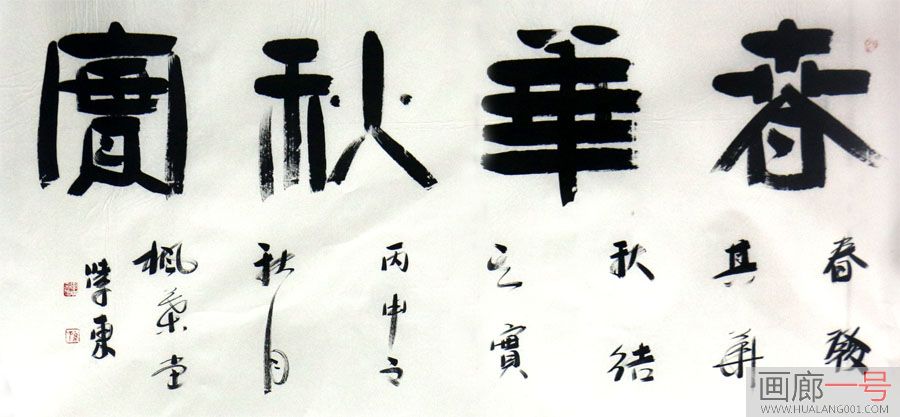 春華秋實
春發
其華
秋結
之實
丙申之
秋月
楓葉堂
東
画廊一号
WWW.HUALANG001.COM